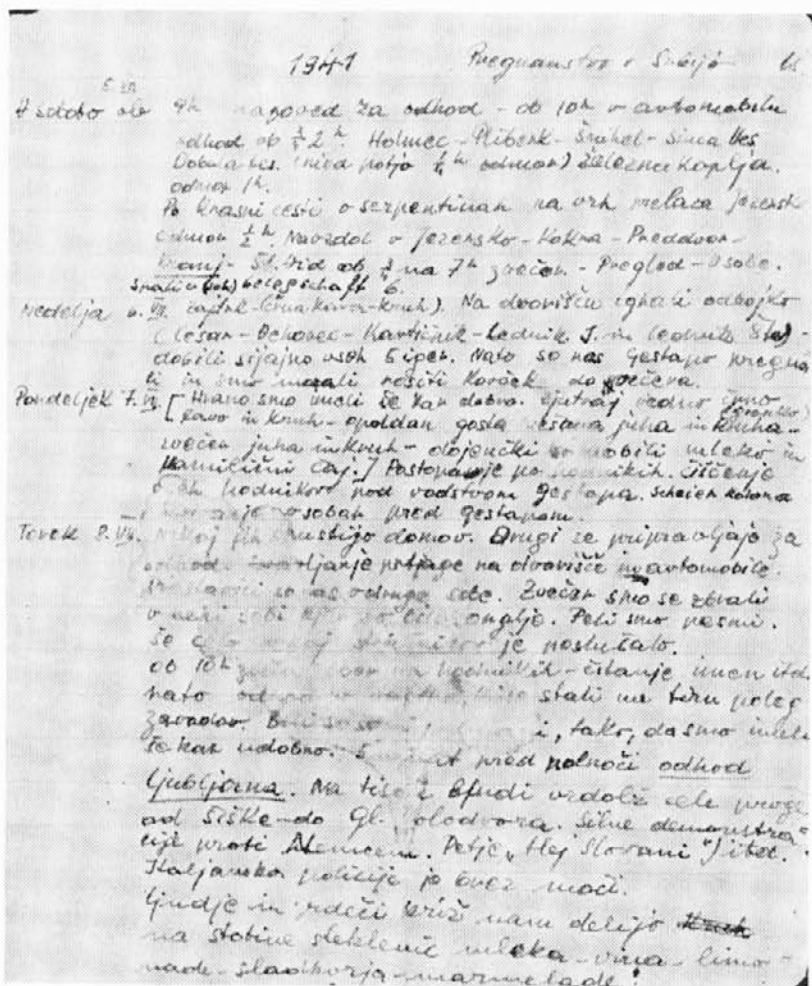 1941 Pregnanstvo v Srbijo
V soboto ob 9h napoved za odhod - ob 10h v avtomobilu
odhod ob ½ 2h. Holmec - Pliberk - Šmihel - Sinča Ves
Dobrla ves. (nied potjo ¼h odmor) Železna Koplja.
odmor 1h.
Po krasni cesti v serpentinah na vrh prelaza Jezersk
odmor ½h. Navzdol v Jezersko - Kokra - Preddvor -
Kranj - Št. Vid ob na 7h zvečer. - Pregled - v sobe.
Spali v belegschaft 6.
Nedelja 6. VII. zajtrk - črna kava - kruh). Na dvorišču igrali odbojko
(Lesar - Lednik J. in Lednik
dobili sijajno vseh 5 iger. Nato so nas Gestapo pregna
li in smo morali nositi do večera.
Pondeljek 7. VII. [Hrano smo imeli še kar dobro. Zjutraj vedno črno
kavo in kruh - opoldan gosta juha in kruha -
zvečer juha in kruh - dojenčki so dobili mleko in
kamilični čaj.] Postopanje po hodnikih. Čiščenje
vseh hodnikov pod vodstvom Gestapa.
po sobah pred Gestapom.
Torek 8. VII. Nekaj jih spustijo domov. Drugi se pripravljajo za
odhod. prtljage na dvorišče in avtomobile.
so nas v druge sobe. Zvečer smo se zbrali
v neki sobi Peli smo pesmi.
še celo je poslušalo.
ob 10h zbor na hodnikih - čitanje imen itd.
nato stali na tiru poleg
zavodov. Bili so tako, da smo imeli
še kar udobno. pred polnoči odhod
Ljubljana. Na tisoče ljudi vzdolž cele proge
od Šiške - do Gl. kolodvora. Silne demonstra-
cije proti Nemcem. Petje „Hej Slovani“) itd.
Italjanska policija je brez moči.
Ljudje in rdeči križ nam delijo kruh
na stotine steklenic mleka - vina - limo-
nade - sladkorja - marmelade!